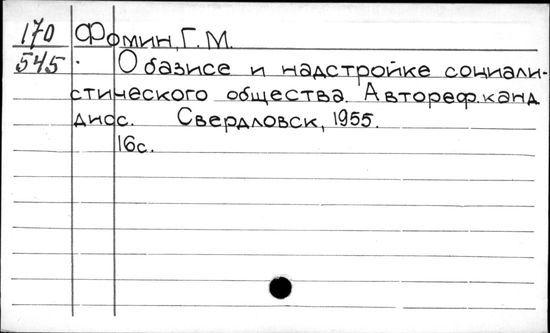 170 Фомин, Г. М.
545 . О базисе и надстройке социали-
стического общества. Автореф. канд
дисс. Свердловск, 1955.
16с.